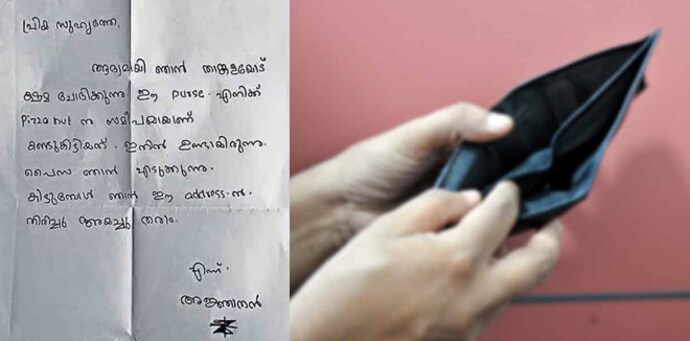 പ്രിയ സുഹൃത്തേ,
ആദ്യമായി ഞാൻ താങ്കളോട്
ക്ഷമ ചോദിക്കുന്നു ഈ purse. എനിക്ക്
Pizza hut ന് സമീപമായാണ്
കണ്ടുകിട്ടിയത്. ഇതിൽ ഉണ്ടായിരുന്ന.
പൈസ ഞാൻ എടുക്കുന്നു.
കിട്ടുമ്പോൾ ഞാൻ ഈ address.ൽ.
തിരിച്ചു അയച്ചു തരാം.
എന്ന്.
അജ്ഞാതൻ